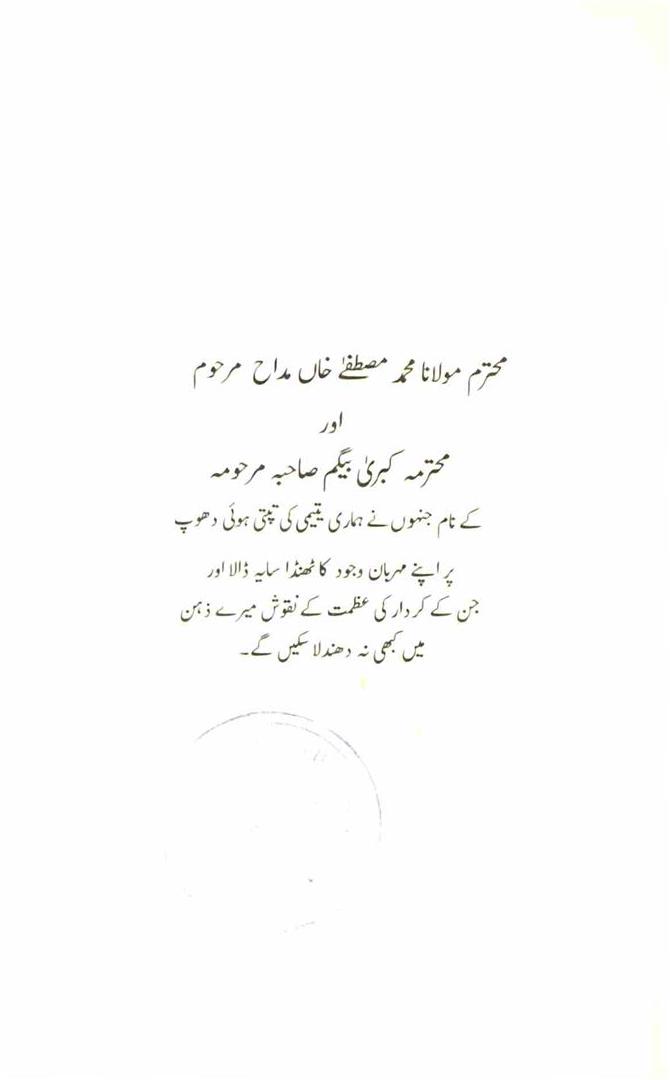 محترم مولانا محمد مصطفےٰ خاں مداح مرحوم
اور
محترمہ کبریٰ بیگم صاحبہ مرحومہ
کے نام جنہوں نے ہماری یتیمی کی تپتی ہوئی دھوپ
پر اپنے مہربان وجود کا ٹھنڈا سایہ ڈالا اور
جن کے کردار کی عظمت کے نقوش میرے ذہن
میں کبھی نہ دھندلا سکیں گے۔